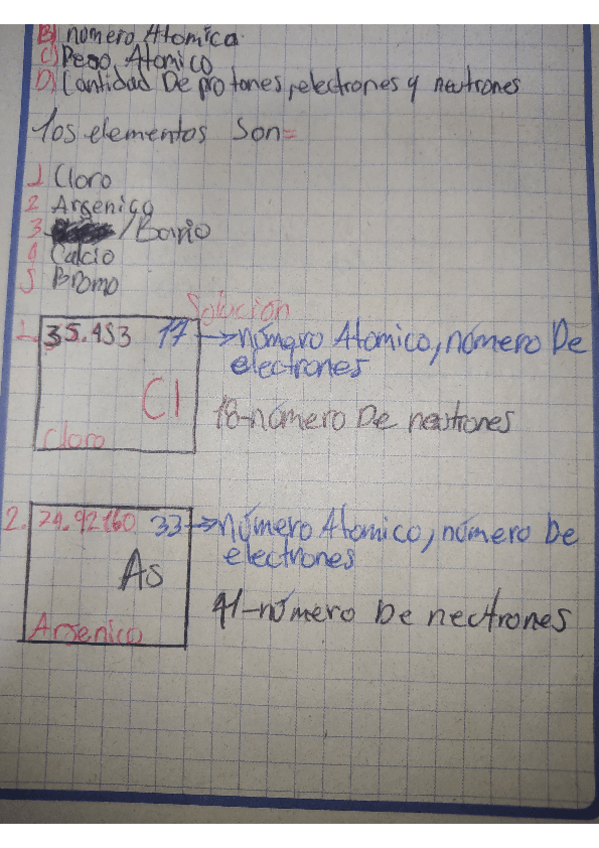 B) número Atomica
C) Peso. Atomico
D) Cantidad De protones, electrones y neutrones
los elementos Son=
1 Cloro
2 Arsenico
3 / Bario
4 Calcio
5 Bromo
Solución
1. 35.453 17 → número Atomico, número De
electrones
Cl
18-número De neutrones
Cloro
2. 74.92160 33 → número Atomico, número De
electrones
As
41-número De nectrones
Arsenico